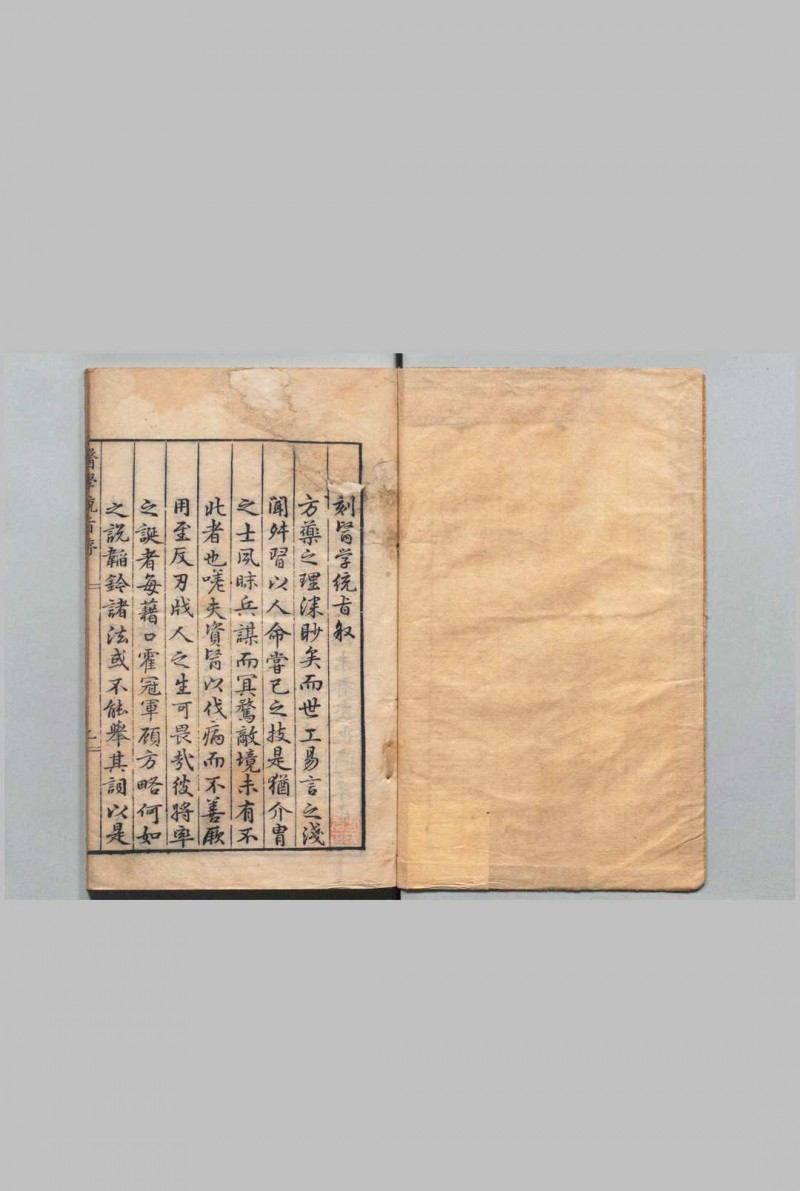 刻醫学统旨叙
方藥之理深眇矣而世工易言之淺
聞舛習以人命嘗己之技是猶介胄
之士夙昧兵謀而冥驁敵境未有不
此者也嗟夫資醫以伐病而不善厥
用至反刃戕人之生可畏哉彼將率
之誕者每藉口霍冠軍顧方略何如
之説韜鈐諸法或不能舉其詞以是
醫學統旨序 一